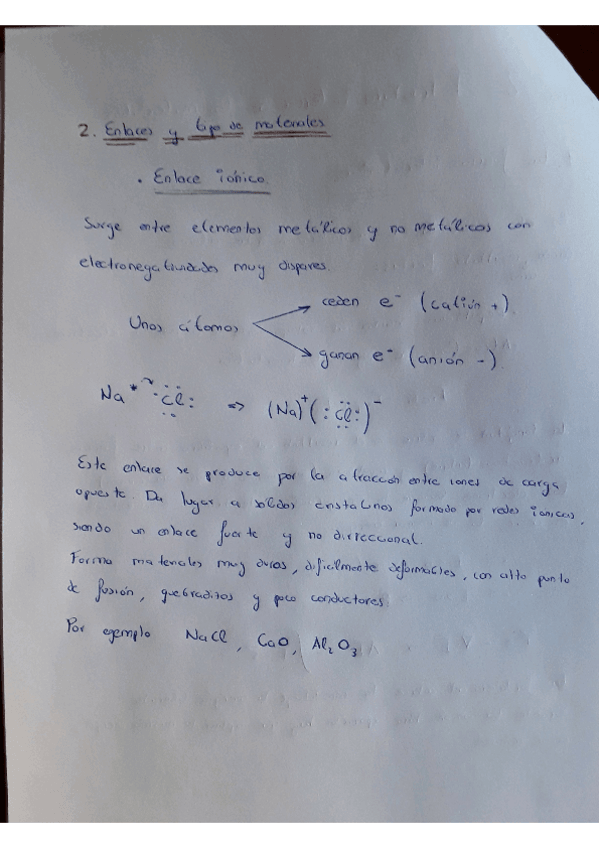 2. Enlaces y tipo de materiales
. Enlace iónico
Surge entre elementos metálicos y no metálicos con
electronegatividades muy dispares.
Unos átomos
ceden e⁻ (catión +)
ganan e⁻ (anión -).
Na * :Cl: => (Na)⁺(:Cl:)⁻
Este enlace se produce por la atracción entre iones de carga
opuesta. Da lugar a sólidos cristalinos formado por redes iónicas,
siendo un enlace fuerte y no direccional.
Forma materiales muy duros, dificilmente deformables, con alto punto
de fusión, quebradizos y poco conductores.
Por ejemplo NaCl, CaO, Al₂O₃